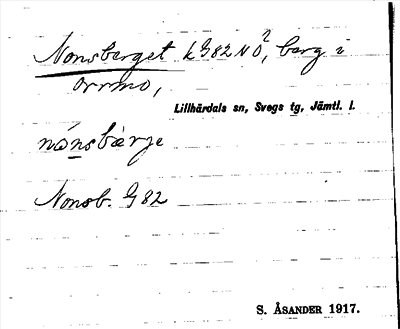 Nonsberget k G82 NÖ?, berg i
Orrmo,
Lillhärdals sn, Svegs tg, Jämtl. l.
nónsbàrje
Nonsb. G82
S. ÅSANDER 1917.